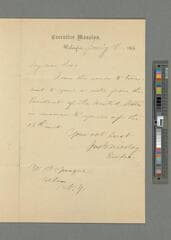 Executive Mansion,
Washington, July 8, 186
My dear Sir
I have the honor to trans-
mit to you a note from the
President of the United States
in answer to yours of the
Your obt Servt
Jno G Nicolay
W. B. Sprague
Albany
N.Y.